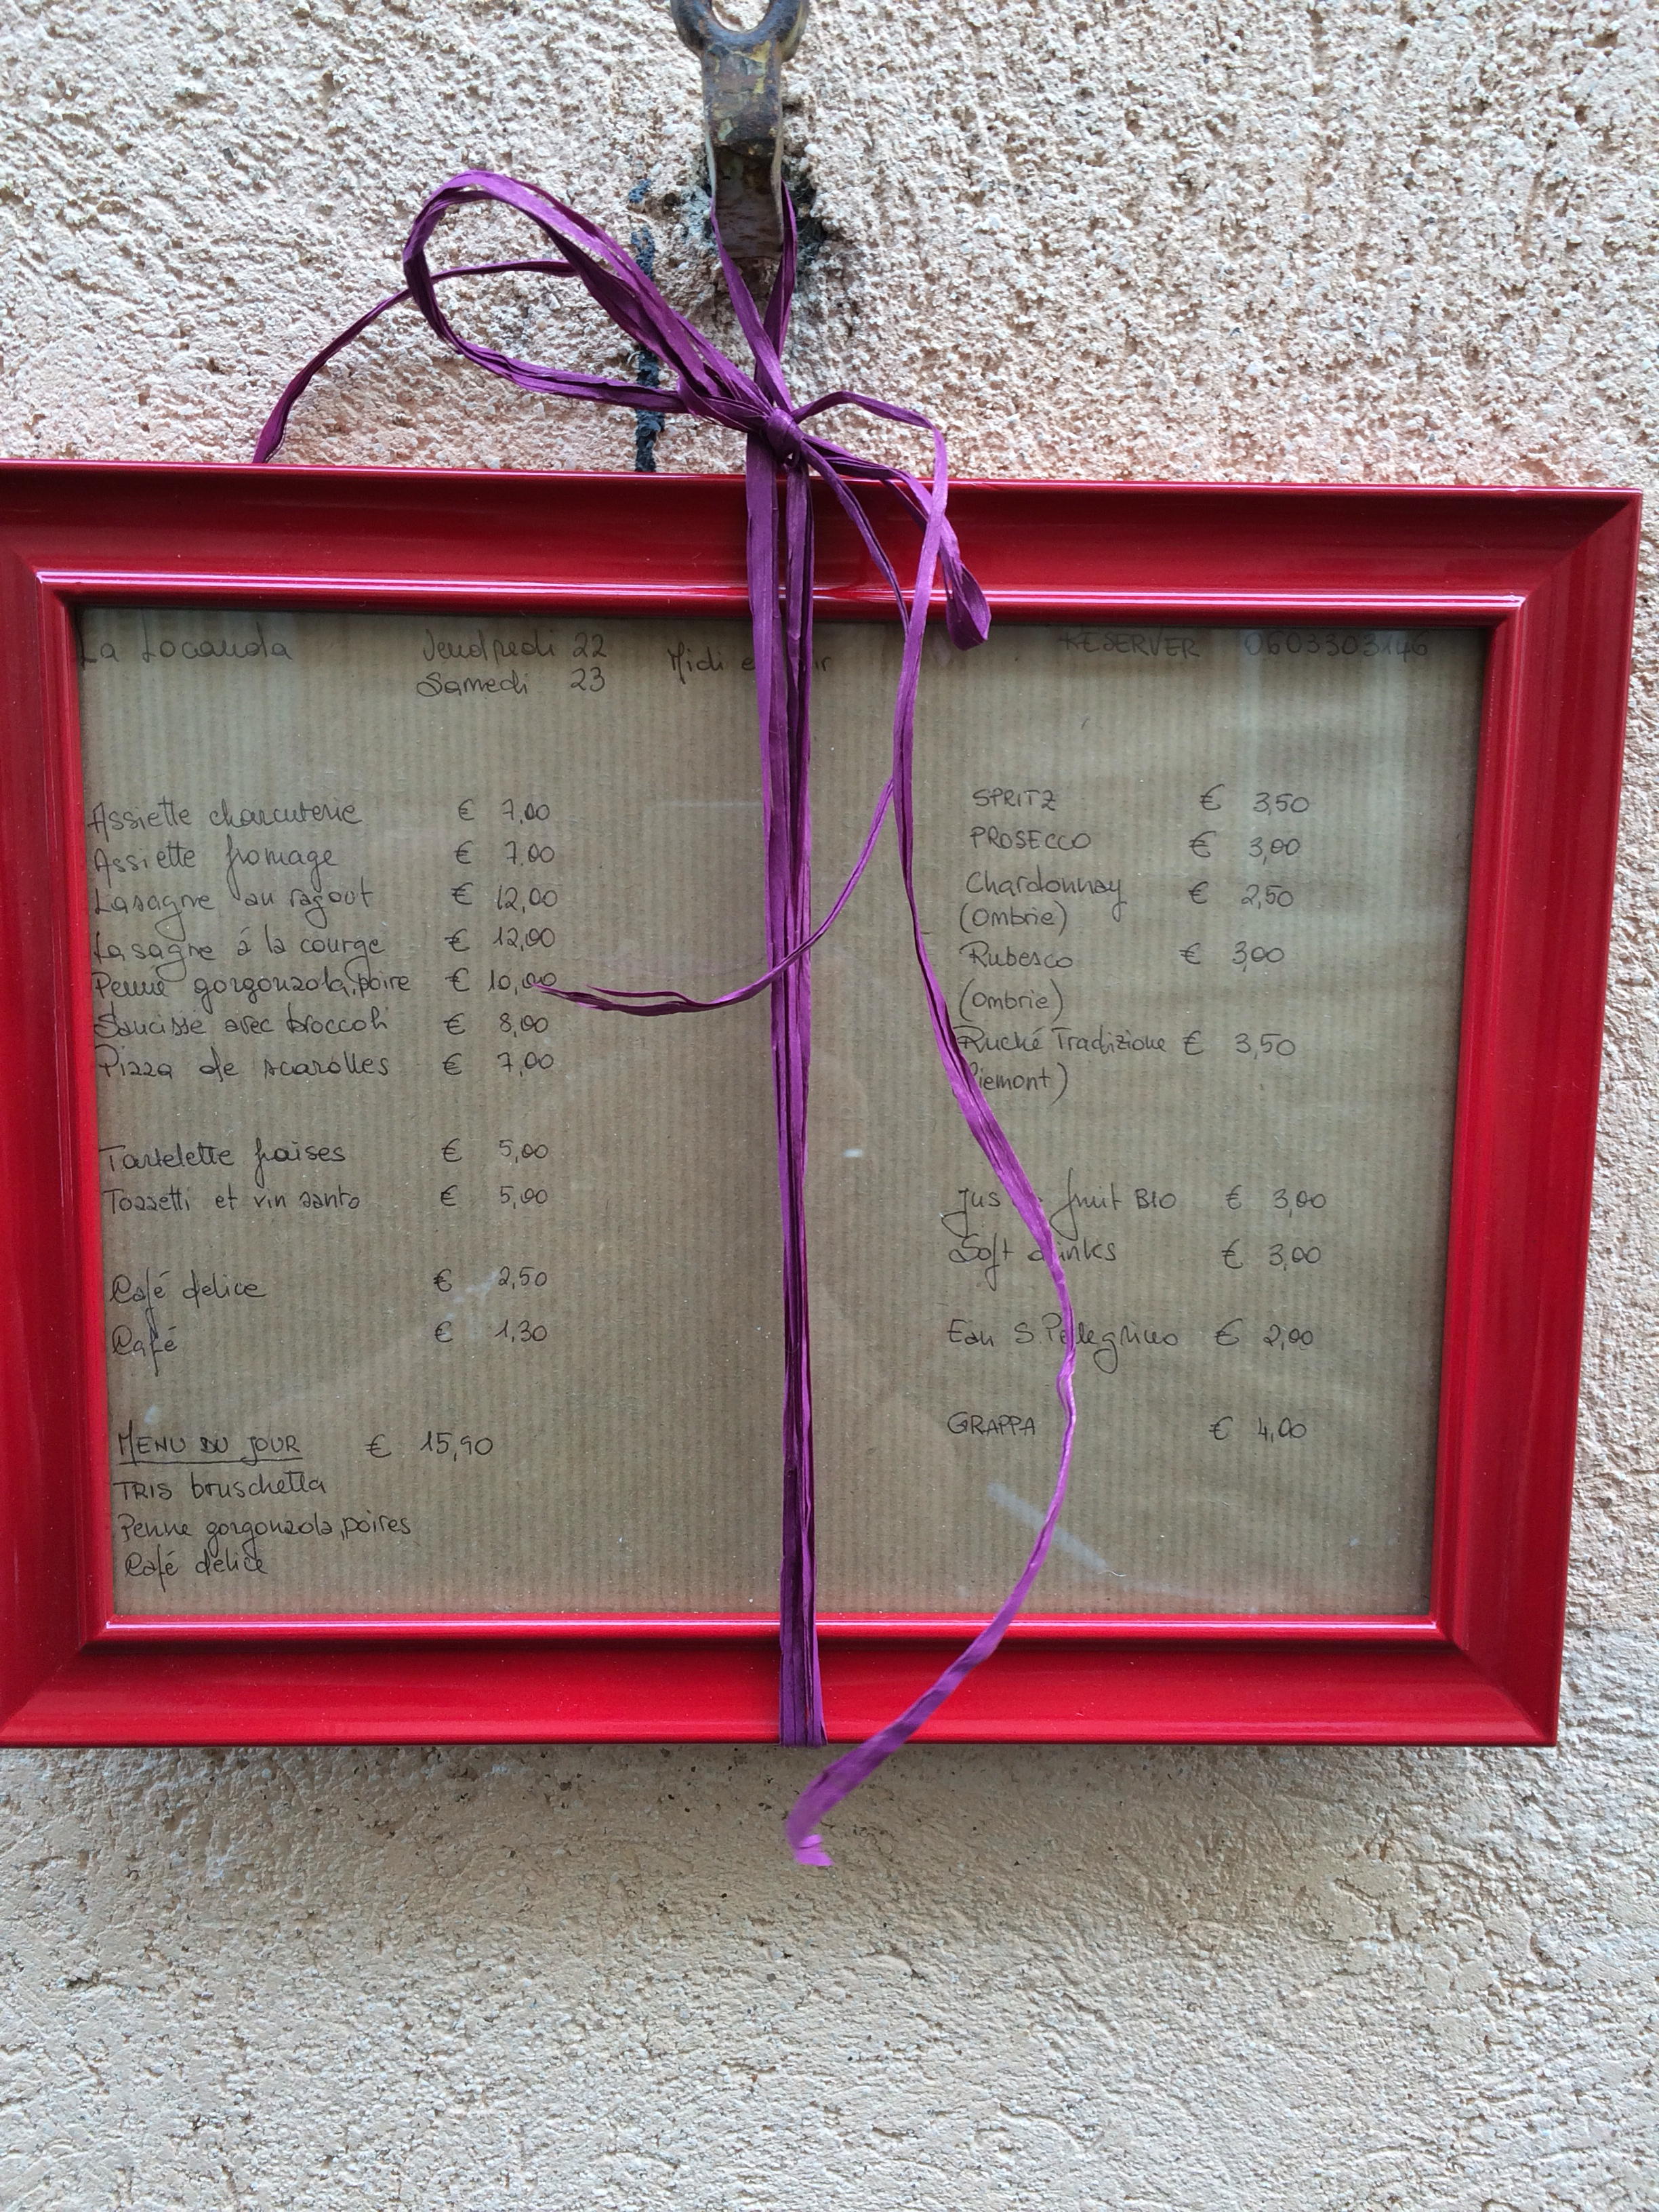 La Locanda Vendredi 22 Midi et soir RESERVER 0603303146
Samedi 23
Assiette charcuterie € 7,00
Assiette fromage € 7,00
Lasagne au ragout € 12,00
Lasagne á la courge € 12,00
Penne gorgonzola,poire € 10,00
Saucisse avec broccoli € 8,00
Pizza de scarolles € 7,00
Tartelette fraises € 5,00
Tozzetti et vin santo € 5,00
Café delice € 2,50
Café € 1,30
MENU DU JOUR € 15,90
TRIS bruschetta
Penne gorgonzola,poires
Café delice
SPRITZ € 3,50
PROSECCO € 3,00
Chardonnay € 2,50
(Ombrie)
Rubesco € 3,00
(Ombrie)
Ruché Tradizione € 3,50
(Piemont)
Jus fruit BIO € 3,00
Soft drinks € 3,00
Eau S.Pellegrino € 2,00
GRAPPA € 4,00